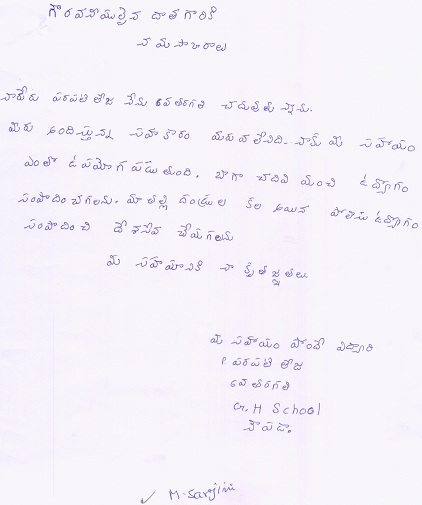 గౌరవనీయులైన దాత గారికి
నమస్కారాలు
నాపేరు పరపటి తేజ నేను 6వ తరగతి చదువుతున్నాను.
మీరు అందిస్తున్న సహకారం మరువలేనిది. నాకు మీ సహాయం
ఎంతో ఉపయోగ పడుతుంది. బాగా చదివి మంచి ఉద్యోగం
సంపాదించగలను. మా తల్లి దండ్రుల కల అయిన పోలీసు ఉద్యోగం
సంపాదించి దేశసేవ చేయగలను
మీ సహాయానికి నా కృతజ్ఞతలు
మీ సహాయం పొందే విద్యార్థి
P పరపటి తేజ
6వ తరగతి
G.H School
చౌపడా.
M. Sarojini